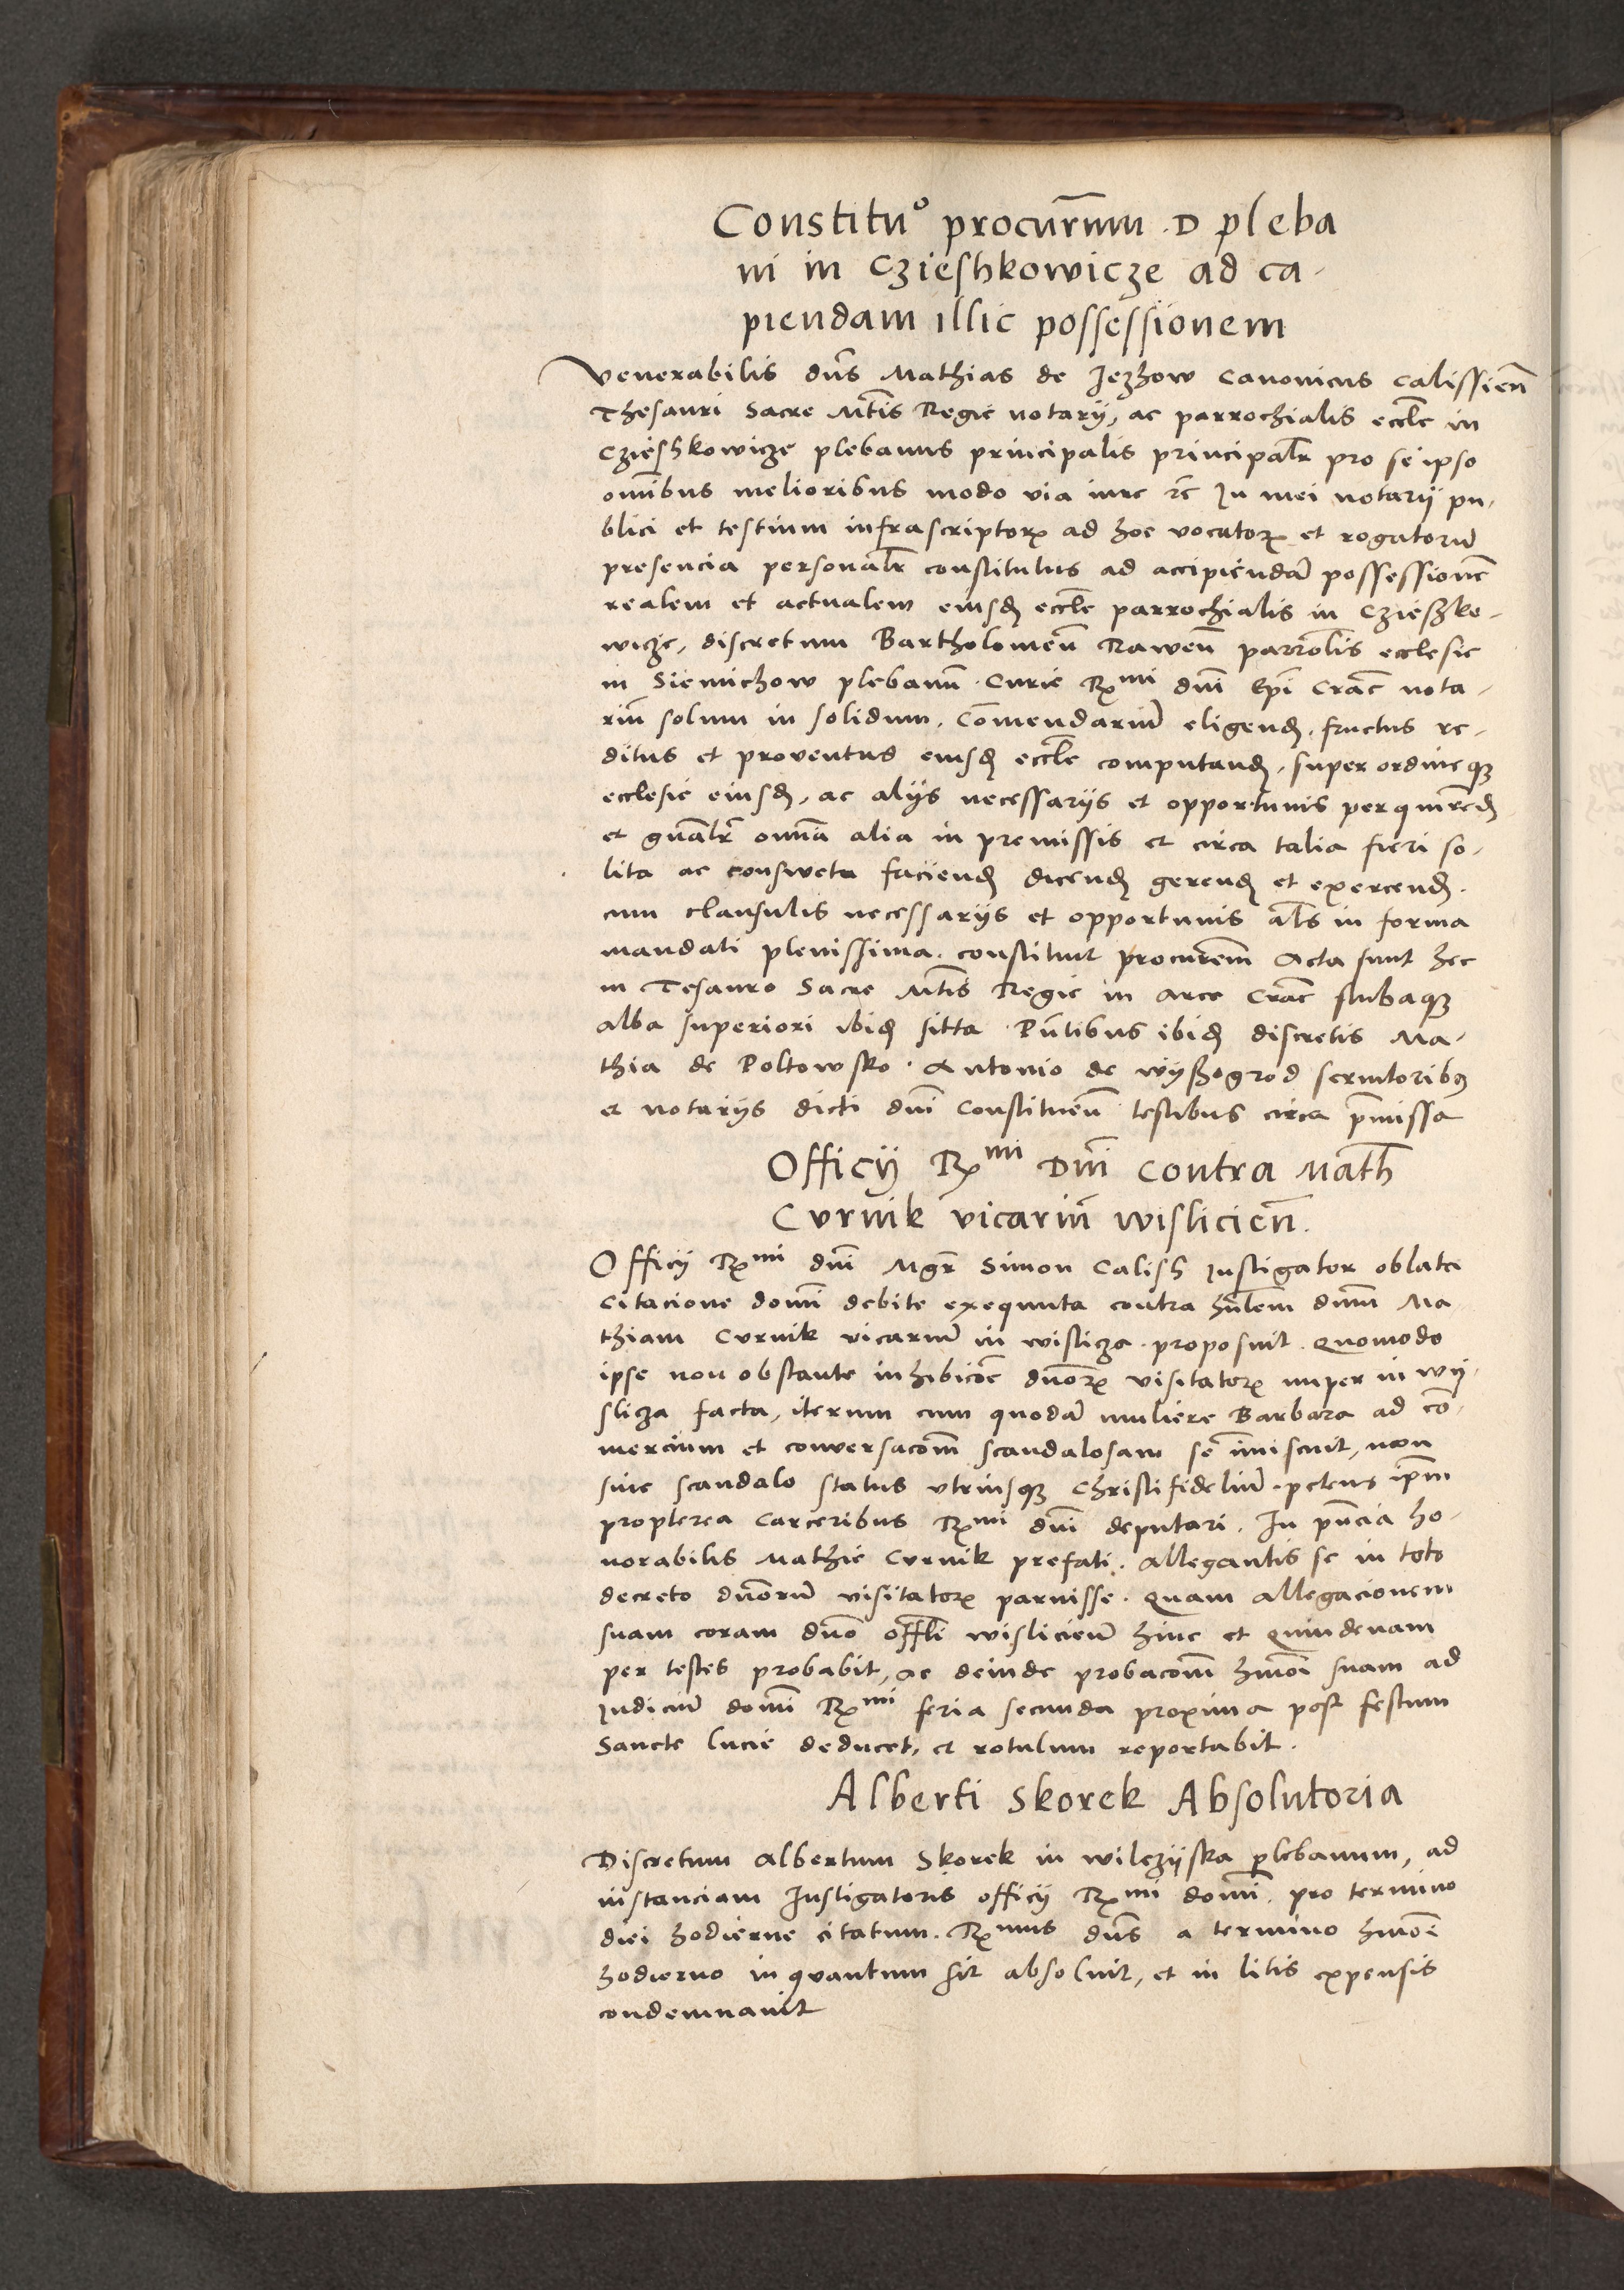 Constitu° procur̄mm .D pleba
ni in Czieshkowicze ad ca-
piendam illic possessionem
Venerabilis dn̄s Mathias de Jezhow Canonicus Calissien̄
Thesauri Sacre Mt̄is Regie notarij, ac parrochialis eccl̄e in
Czieshkowicze plebanus principalis principalr̄ pro se ipso
omībus melioribus modo via iure ꝛc̄ In mei notarij pu-
blici et testium infrascriptorꝝ ad hoc vocatorꝝ et rogatorū
presencia personalr̄ constitutus ad accipiendā possessionē
realem et actualem eiusdꝫ eccl̄e parrochialis in Czieszko-
wicze, discretum Bartholomeū Rawen̄ parrōlis ecclesie
in Siemichow plebanū Curie Rꝫᵐⁱ dn̄i Ep̄i Crac̄ nota-
riū solum in solidum. Com̄endariū eligendꝫ. fructus re-
ditus et proventus eiusdꝫ eccl̄e computandꝫ. super ordine qꝫ
ecclesie eiusdꝫ, ac alijs necessarijs et opportunis perquirēdꝫ
et gn̄alr̄ omn̄ia alia in premissis et circa talia fieri so-
lita ac consweta faciendꝫ dicendꝫ gerendꝫ et exercendꝫ.
cum clausulis necessarijs et opportunis al̄s in forma
mandati plenissima. constituit procurēm̄ Acta sunt hec
in Tesauro Sacre Mt̄is Regie in arce Crac̄ stubaqꝫ
alba superiori ibidꝫ sitta Pn̄tibus ibidꝫ discretis Ma-
thia de Poltowsko. Antonio de wyszogrod scruitoribꝫ
et notarijs dicti dn̄i Constituen̄ testibus circa p̄missa
Officij Rꝫᵐⁱ Dn̄i contra Math̄
Curnik vicariū wislicien̄.
Officij Rꝫᵐⁱ dn̄i Mgr̄ Simon Calish Instigator oblata
citacione dom̄i debite exequuta contra hn̄lem dn̄m Ma
thiam Curnik vicariū in wislicza. proposuit. Quomodo
ipse non obstante inhibicōe dn̄orꝝ visitatorꝝ nuper in wy-
slicza facta, iterum cum quodā muliere Barbara ad cō-
mercium et conversacōm̄ scandalosam se im̄iscuit, non
sine scandalo status vtriusqꝫ Christifideliū. petens ip̄m
propterea carceribus Rꝫᵐⁱ dn̄i deputari. In pn̄cia ho-
norabilis Mathie Curnik prefati. allegantis se in toto
decreto dn̄orū visitatorꝝ paruisse. Quam allegacionem
suam coram dn̄o offl̄i wislicien̄ hinc et Quindenam
per testes probabit, ac deinde probacōm̄ hm̄oi suam ad
Iudiciū dom̄i Rꝫᵐⁱ feria secunda proxima post festum
Sancte Lucie deducet, et rotulum reportabit.
Alberti Skorek Absolutoria
Discretum Albertum Skorek in wilczyska plebanum, ad
instanciam Instigatoris officij Rꝫᵐⁱ dom̄i. pro termino
diei hodierne citatum. Rꝫmus dn̄s a termino hm̄oi
hodierno in quantum sit absoluit, et in litis expensis
condemnauit